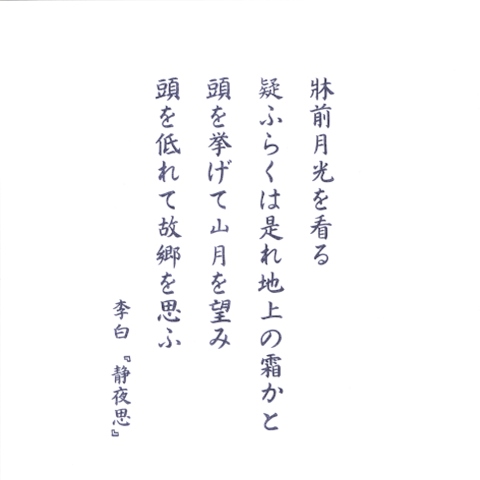 牀前月光を看る
疑ふらくは是れ地上の霜かと
頭を挙げて山月を望み
頭を低れて故郷を思ふ
李白『静夜思』